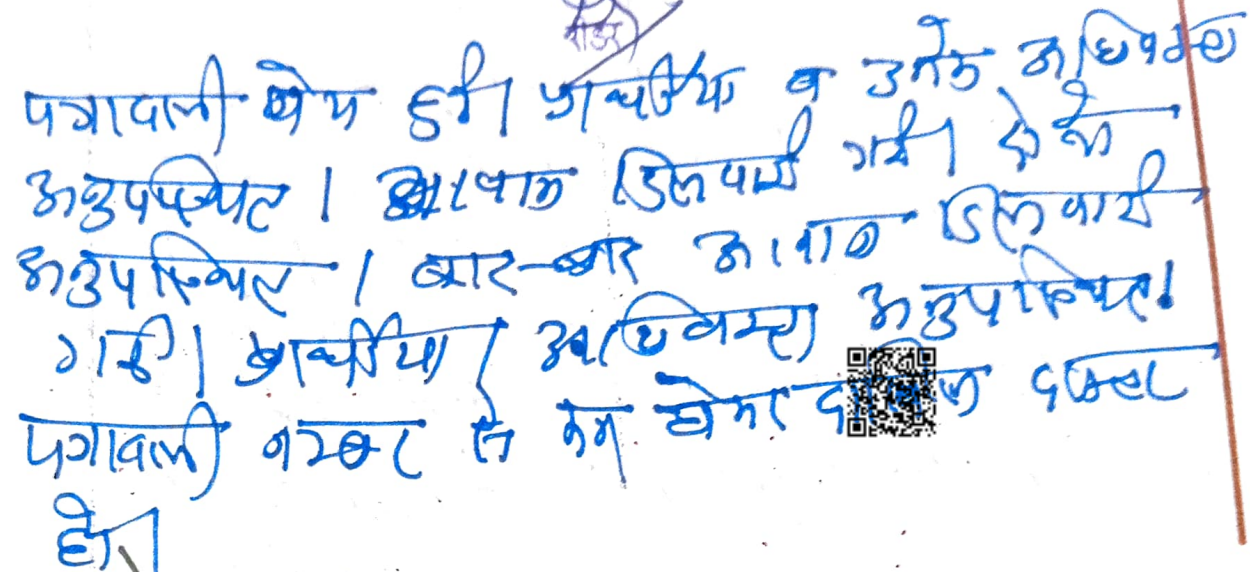 रीडर
पत्रावली पेश हुई। प्रार्थीया व उनके अधिवक्ता
अनुपस्थित। आवाज दिलवाई गई। दोनो
अनुपस्थित। बार-बार आवाज दिलवाई
गई। प्रार्थीया / अधिवक्ता अनुपस्थित।
पत्रावली नम्बर से कम होकर दाखिल दफ्तर
हो।